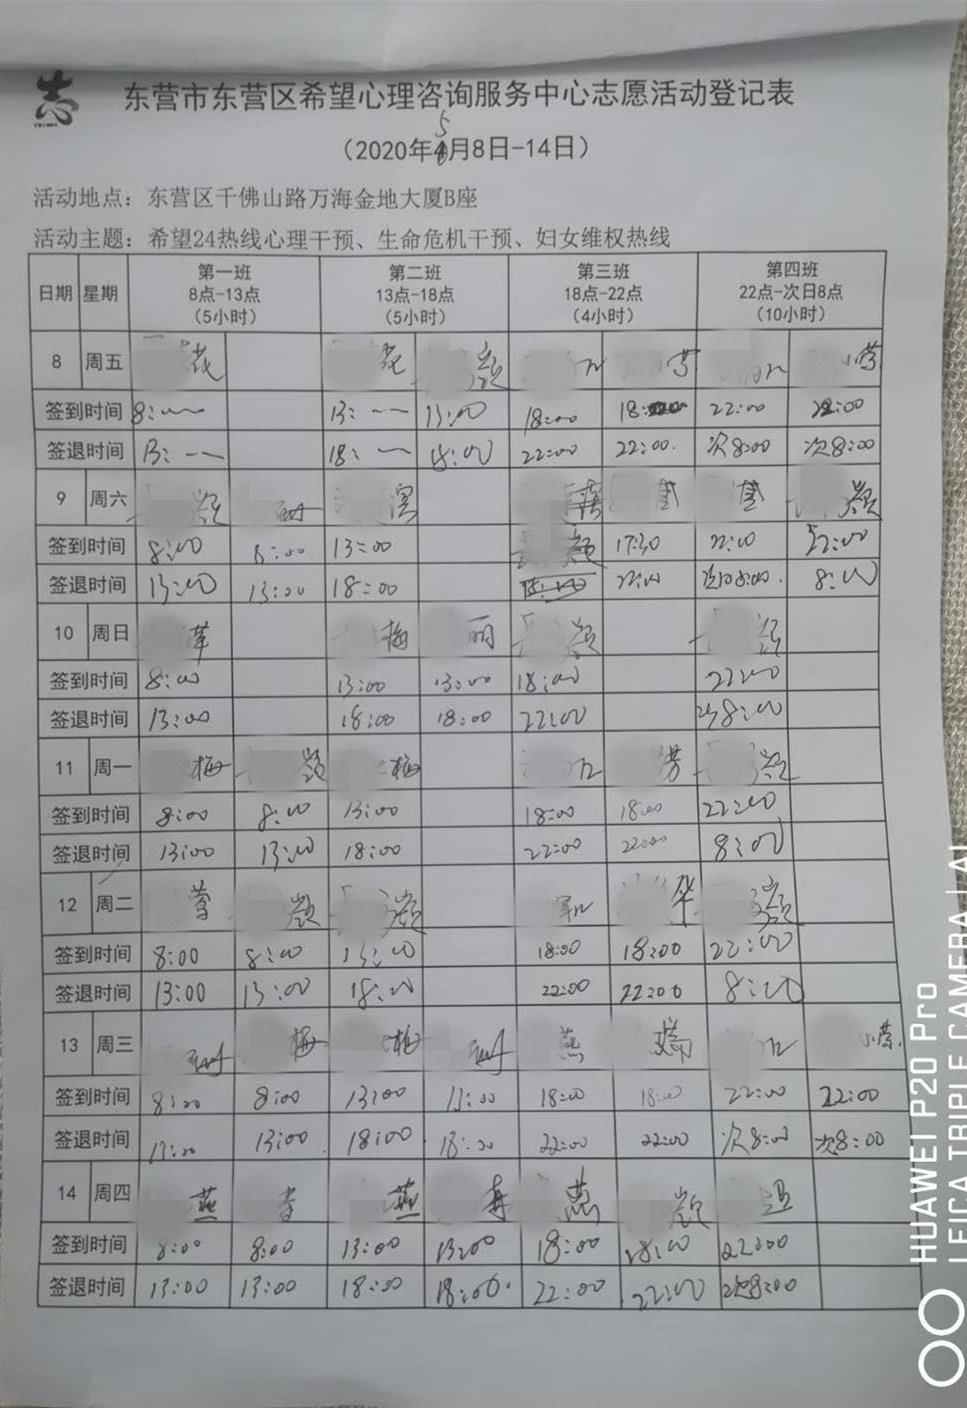 志
东营市东营区希望心理咨询服务中心志愿活动登记表
（2020年5月8日-14日）
活动地点：东营区千佛山路万海金地大厦B座
活动主题：希望24热线心理干预、生命危机干预、妇女维权热线
日期 星期 第一班 8点-13点 （5小时） 第二班 13点-18点 （5小时） 第三班 18点-22点 （4小时） 第四班 22点-次日8点 （10小时）
8 周五 花 花 颜 芳 小莺
签到时间 8: 13: 13:00 18:00 18: 22:00 22:00
签退时间 13: 18: 18:00 22:00 22:00. 次8:00 次8:00
9 周六 颜 颜
签到时间 8:00 8:00 13:00 颜 17:30 22:00 22:00
签退时间 13:00 13:00 18:00 22:00 8:00
10 周日 梅 丽 颜 颜
签到时间 8:00 13:00 13:00 18:00 22:00
签退时间 13:00 18:00 18:00 22:00 8:00
11 周一 梅 颜 梅 芳 颜
签到时间 8:00 8:00 13:00 18:00 18:00 22:00
签退时间 13:00 13:00 18:00 22:00 22:00 8:00
12 周二 莺 颜 颜 华 颜
签到时间 8:00 8:00 13:00 18:00 18:00 22:00
签退时间 13:00 13:00 18:00 22:00 22:00 8:00
13 周三 梅 梅 燕 小莺.
签到时间 8:00 8:00 13:00 13:00 18:00 18:00 22:00 22:00
签退时间 13:00 13:00 18:00 18:00 22:00 22:00 次8:00 次8:00
14 周四 燕 燕 颜
签到时间 8:00 8:00 13:00 13:00 18:00 18:00 22:00
签退时间 13:00 13:00 18:00 18:00. 22:00 22:00 次8:00
HUAWEI P20 Pro
LEICA TRIPLE CAMERA | AI